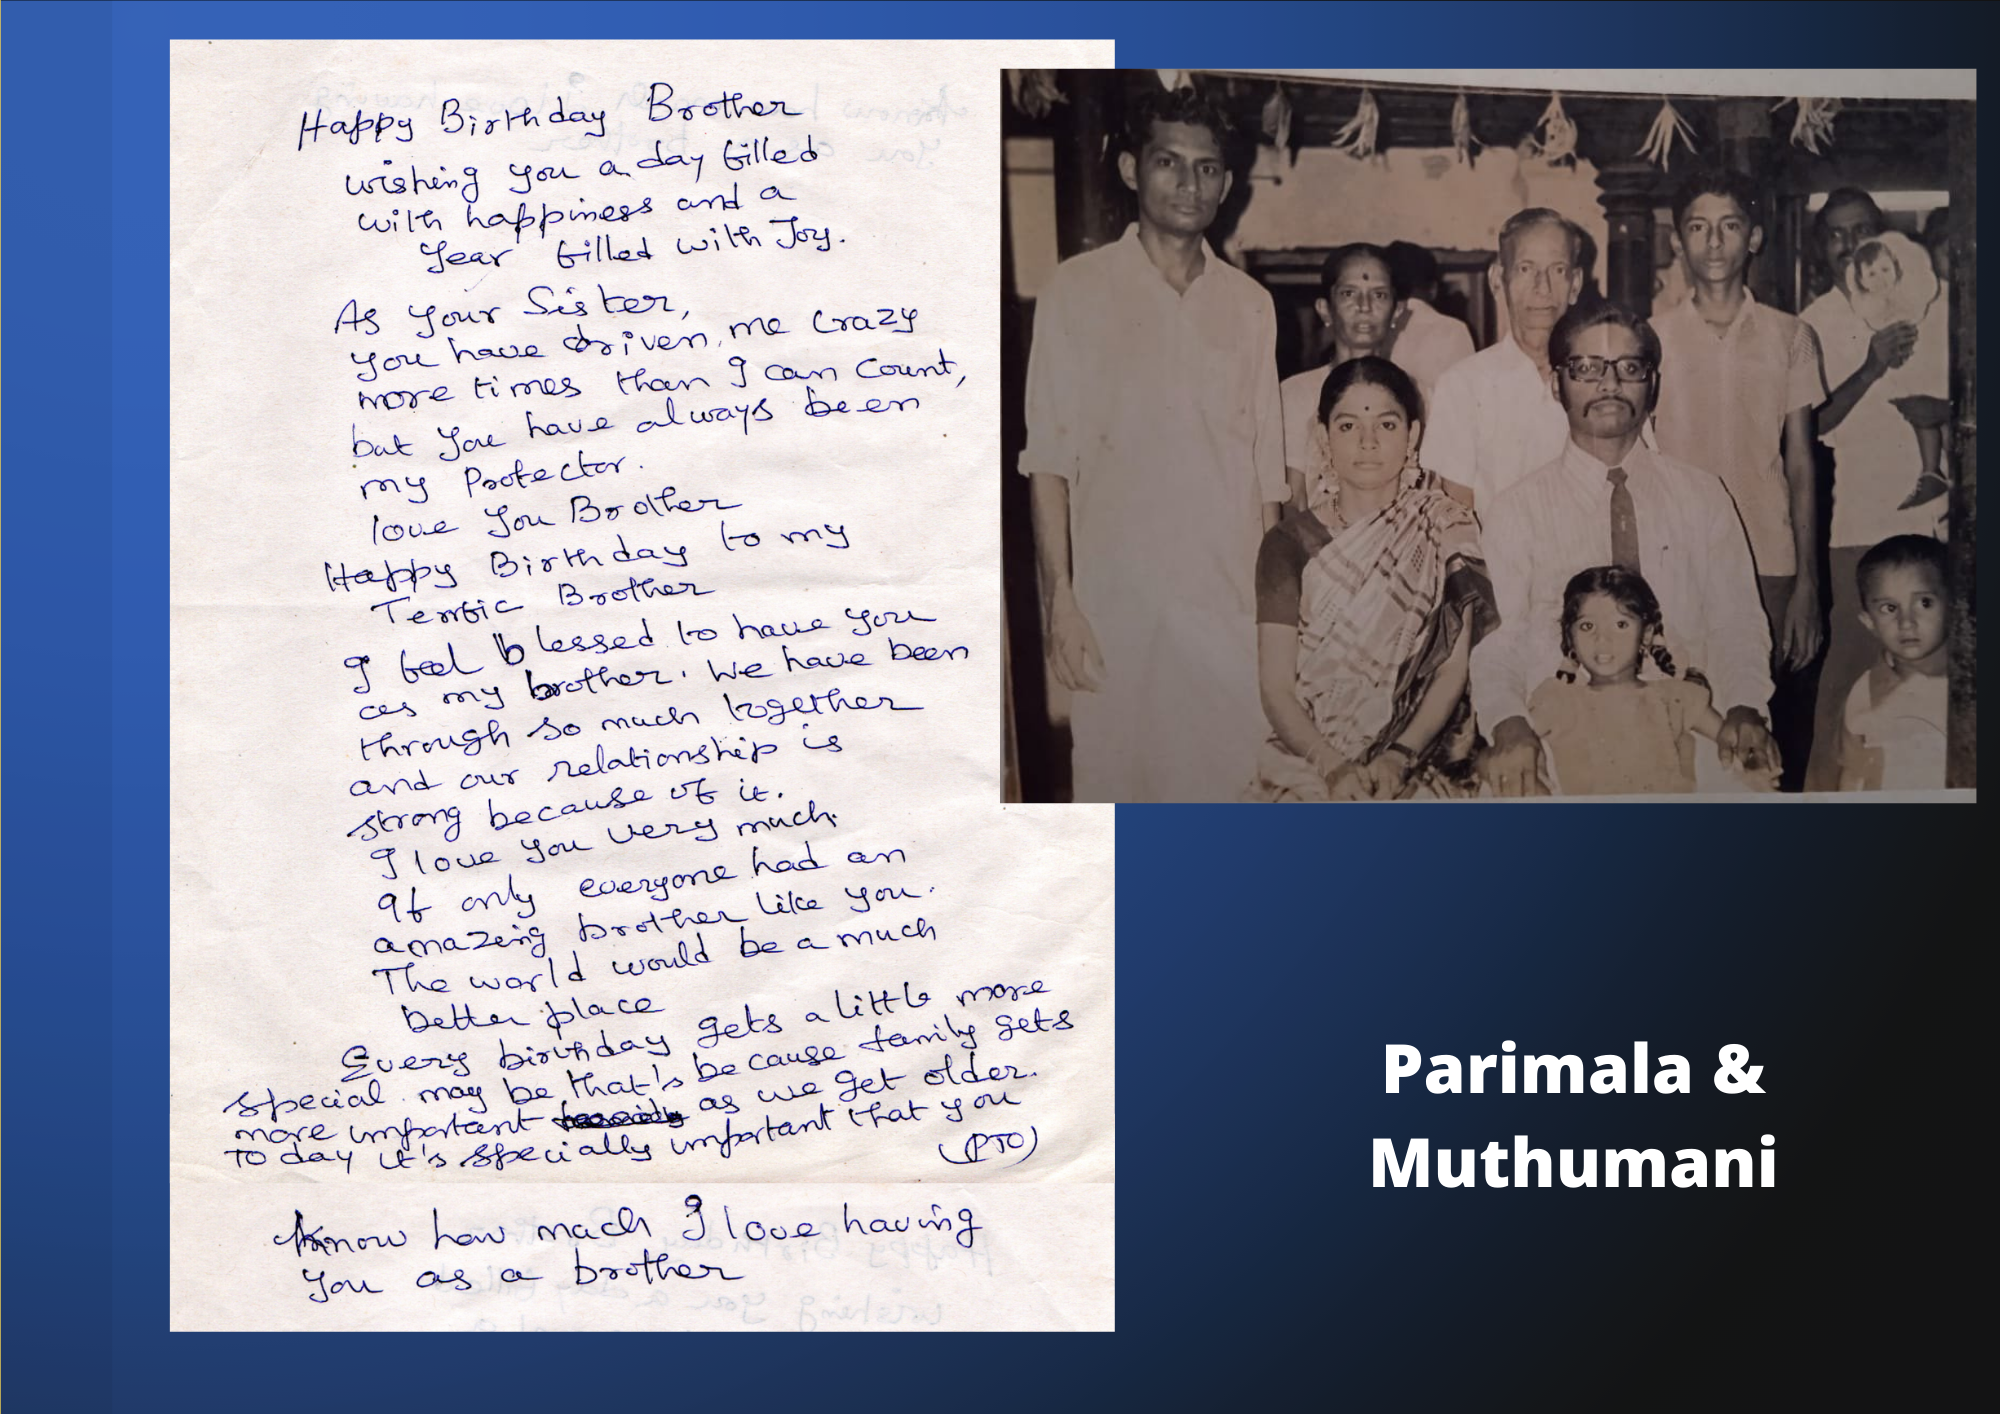 Happy Birthday Brother
wishing you a day filled
with happiness and a
Year filled with Joy.
As your Sister,
you have driven me crazy
more times than I can count,
but you have always been
my Protector.
love you Brother
Happy Birthday to my
Terrific Brother
I feel blessed to have you
as my brother. We have been
through so much together
and our relationship is
strong because of it.
I love you very much.
If only everyone had an
amazing brother like you.
The world would be a much
better place
Every birthday gets a little more
special may be that's because family gets
more important as we get older.
Today it's specially important that you
(PTO)
know how much I love having
you as a brother
Parimala &
Muthumani